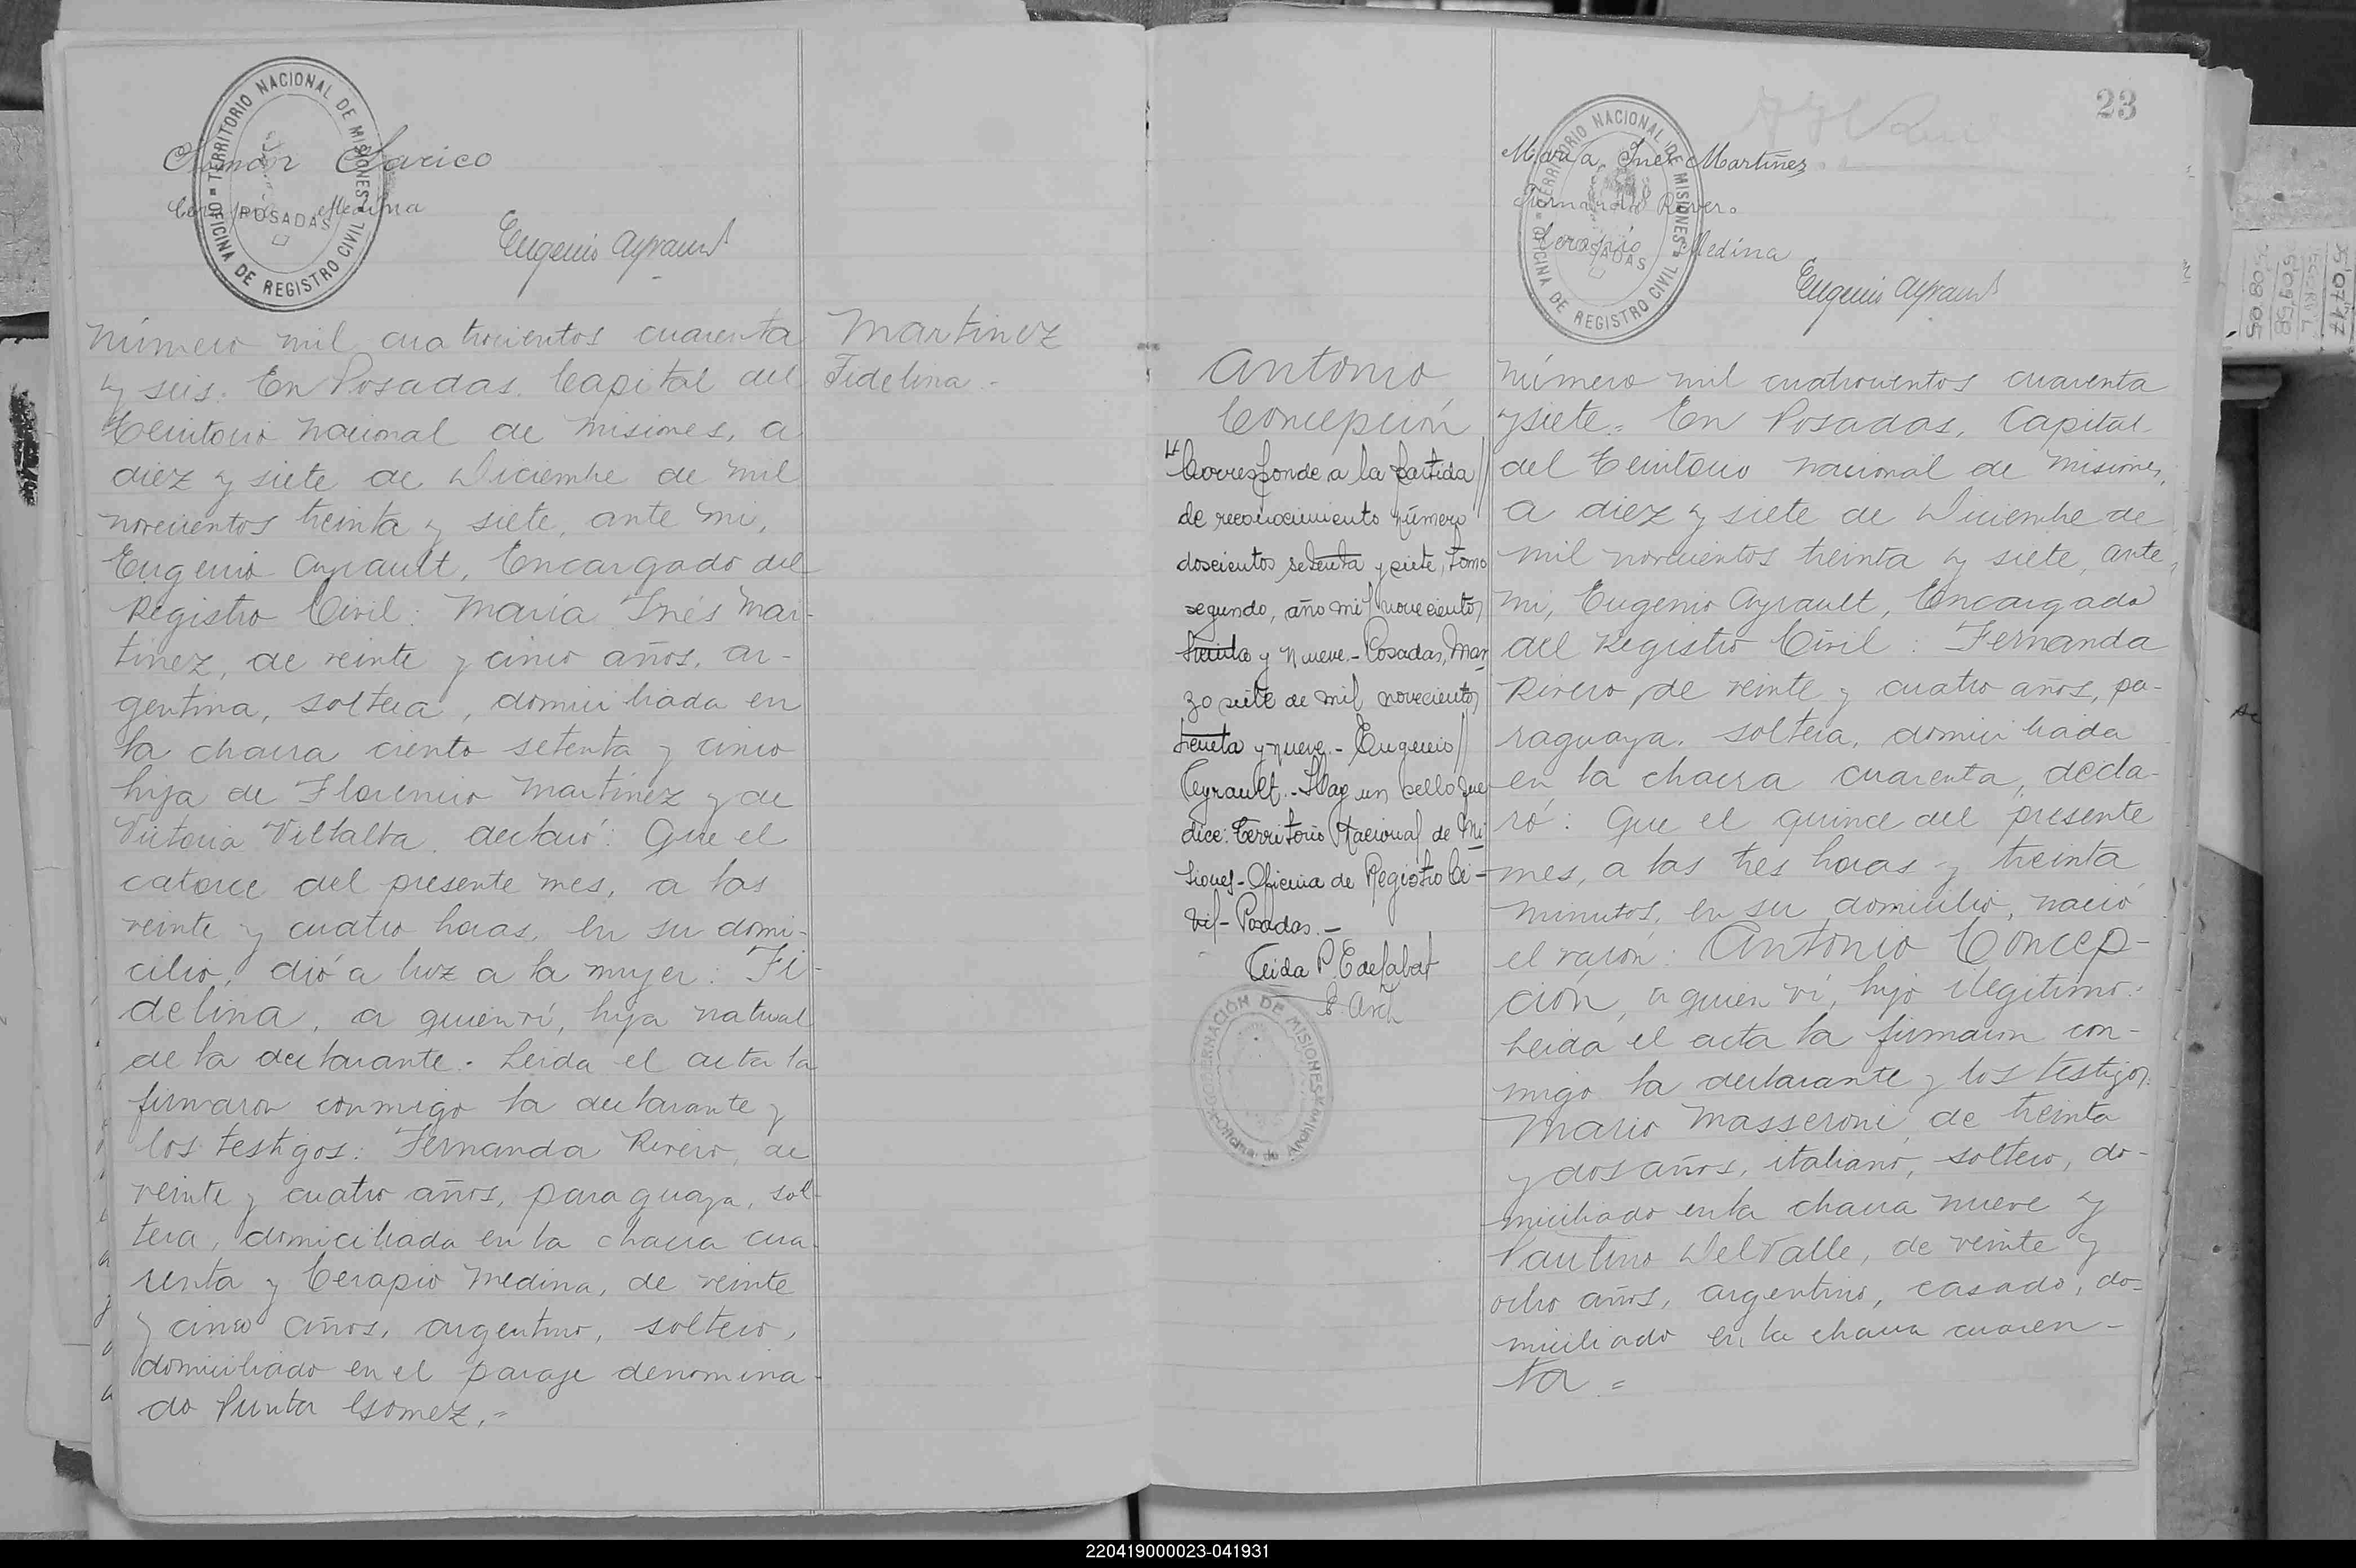 TERRITORIO NACIONAL DE MISIONES
OFICINA DE REGISTRO CIVIL
POSADAS
Medina
Eugenio Ayrault
Número mil cuatrocientos cuarenta
y seis. En Posadas. Capital del
Territorio nacional de misiones, a
diez y siete de Diciembre de mil
novecientos treinta y siete, ante mi,
Eugenio Ayrault, Encargado del
Registro Civil: María Inés Mar-
tinez, de veinte y cinco años, ar-
gentina, soltera, domiciliada en
la chacra ciento setenta y cinco
hija de Florencio Martínez y de
Victoria Villalba, declaró: Que el
catorce del presente mes, a las
veinte y cuatro horas, en su domi-
cilio, dió a luz a la mujer: Fi-
delina, a quien ví, hija natural
de la declarante. Leida el acta la
firmaron conmigo la declarante y
los testigos: Fernanda Rivero, de
veinte y cuatro años, paraguaya, sol-
tera, domiciliada en la chacra cua-
renta y Cerapio Medina, de veinte
y cinco años, argentino, soltero,
domiciliado en el paraje denomina-
do Punta Gomez.=
Martinez
Fidelina.-
23
TERRITORIO NACIONAL DE MISIONES
OFICINA DE REGISTRO CIVIL
POSADAS
Maria Ines Martinez
Fernanda Rivero
Cerapio Medina
Eugenio Ayrault
Antonio
Concepción
Corresponde a la partida
de reconocimiento número
doscientos setenta y siete, tomo
segundo, año mil novecientos
treinta y nueve.- Posadas, Mar
zo siete de mil novecientos
treinta y nueve.- Eugenio
Ayrault.- Hay un sello que
dice: Territorio Nacional de Mi
siones - Oficina de Registro Ci-
vil - Posadas.-
GOBERNACIÓN DE MISIONES
Oficina de Archivo
Número mil cuatrocientos cuarenta
y siete.= En Posadas, Capital
del Territorio nacional de misiones,
a diez y siete de Diciembre de
mil novecientos treinta y siete, ante
mi, Eugenio Ayrault, Encargado
del Registro Civil: Fernanda
Rivero, de veinte y cuatro años, pa-
raguaya, soltera, domiciliada
en la chacra cuarenta, decla-
ró: Que el quince del presente
mes, a las tres horas y treinta
minutos, en su domicilio, nació
el varón: Antonio Concep-
ción, a quien ví, hijo ilegítimo.
Leida el acta la firmaron con-
migo la declarante y los testigos:
Mario Masseroni, de treinta
y dos años, italiano, soltero, do-
miciliado en la chacra nueve y
Paulino Del Valle, de veinte y
ocho años, argentino, casado, do-
miciliado en la chacra cuaren-
ta.=
220419000023-041931